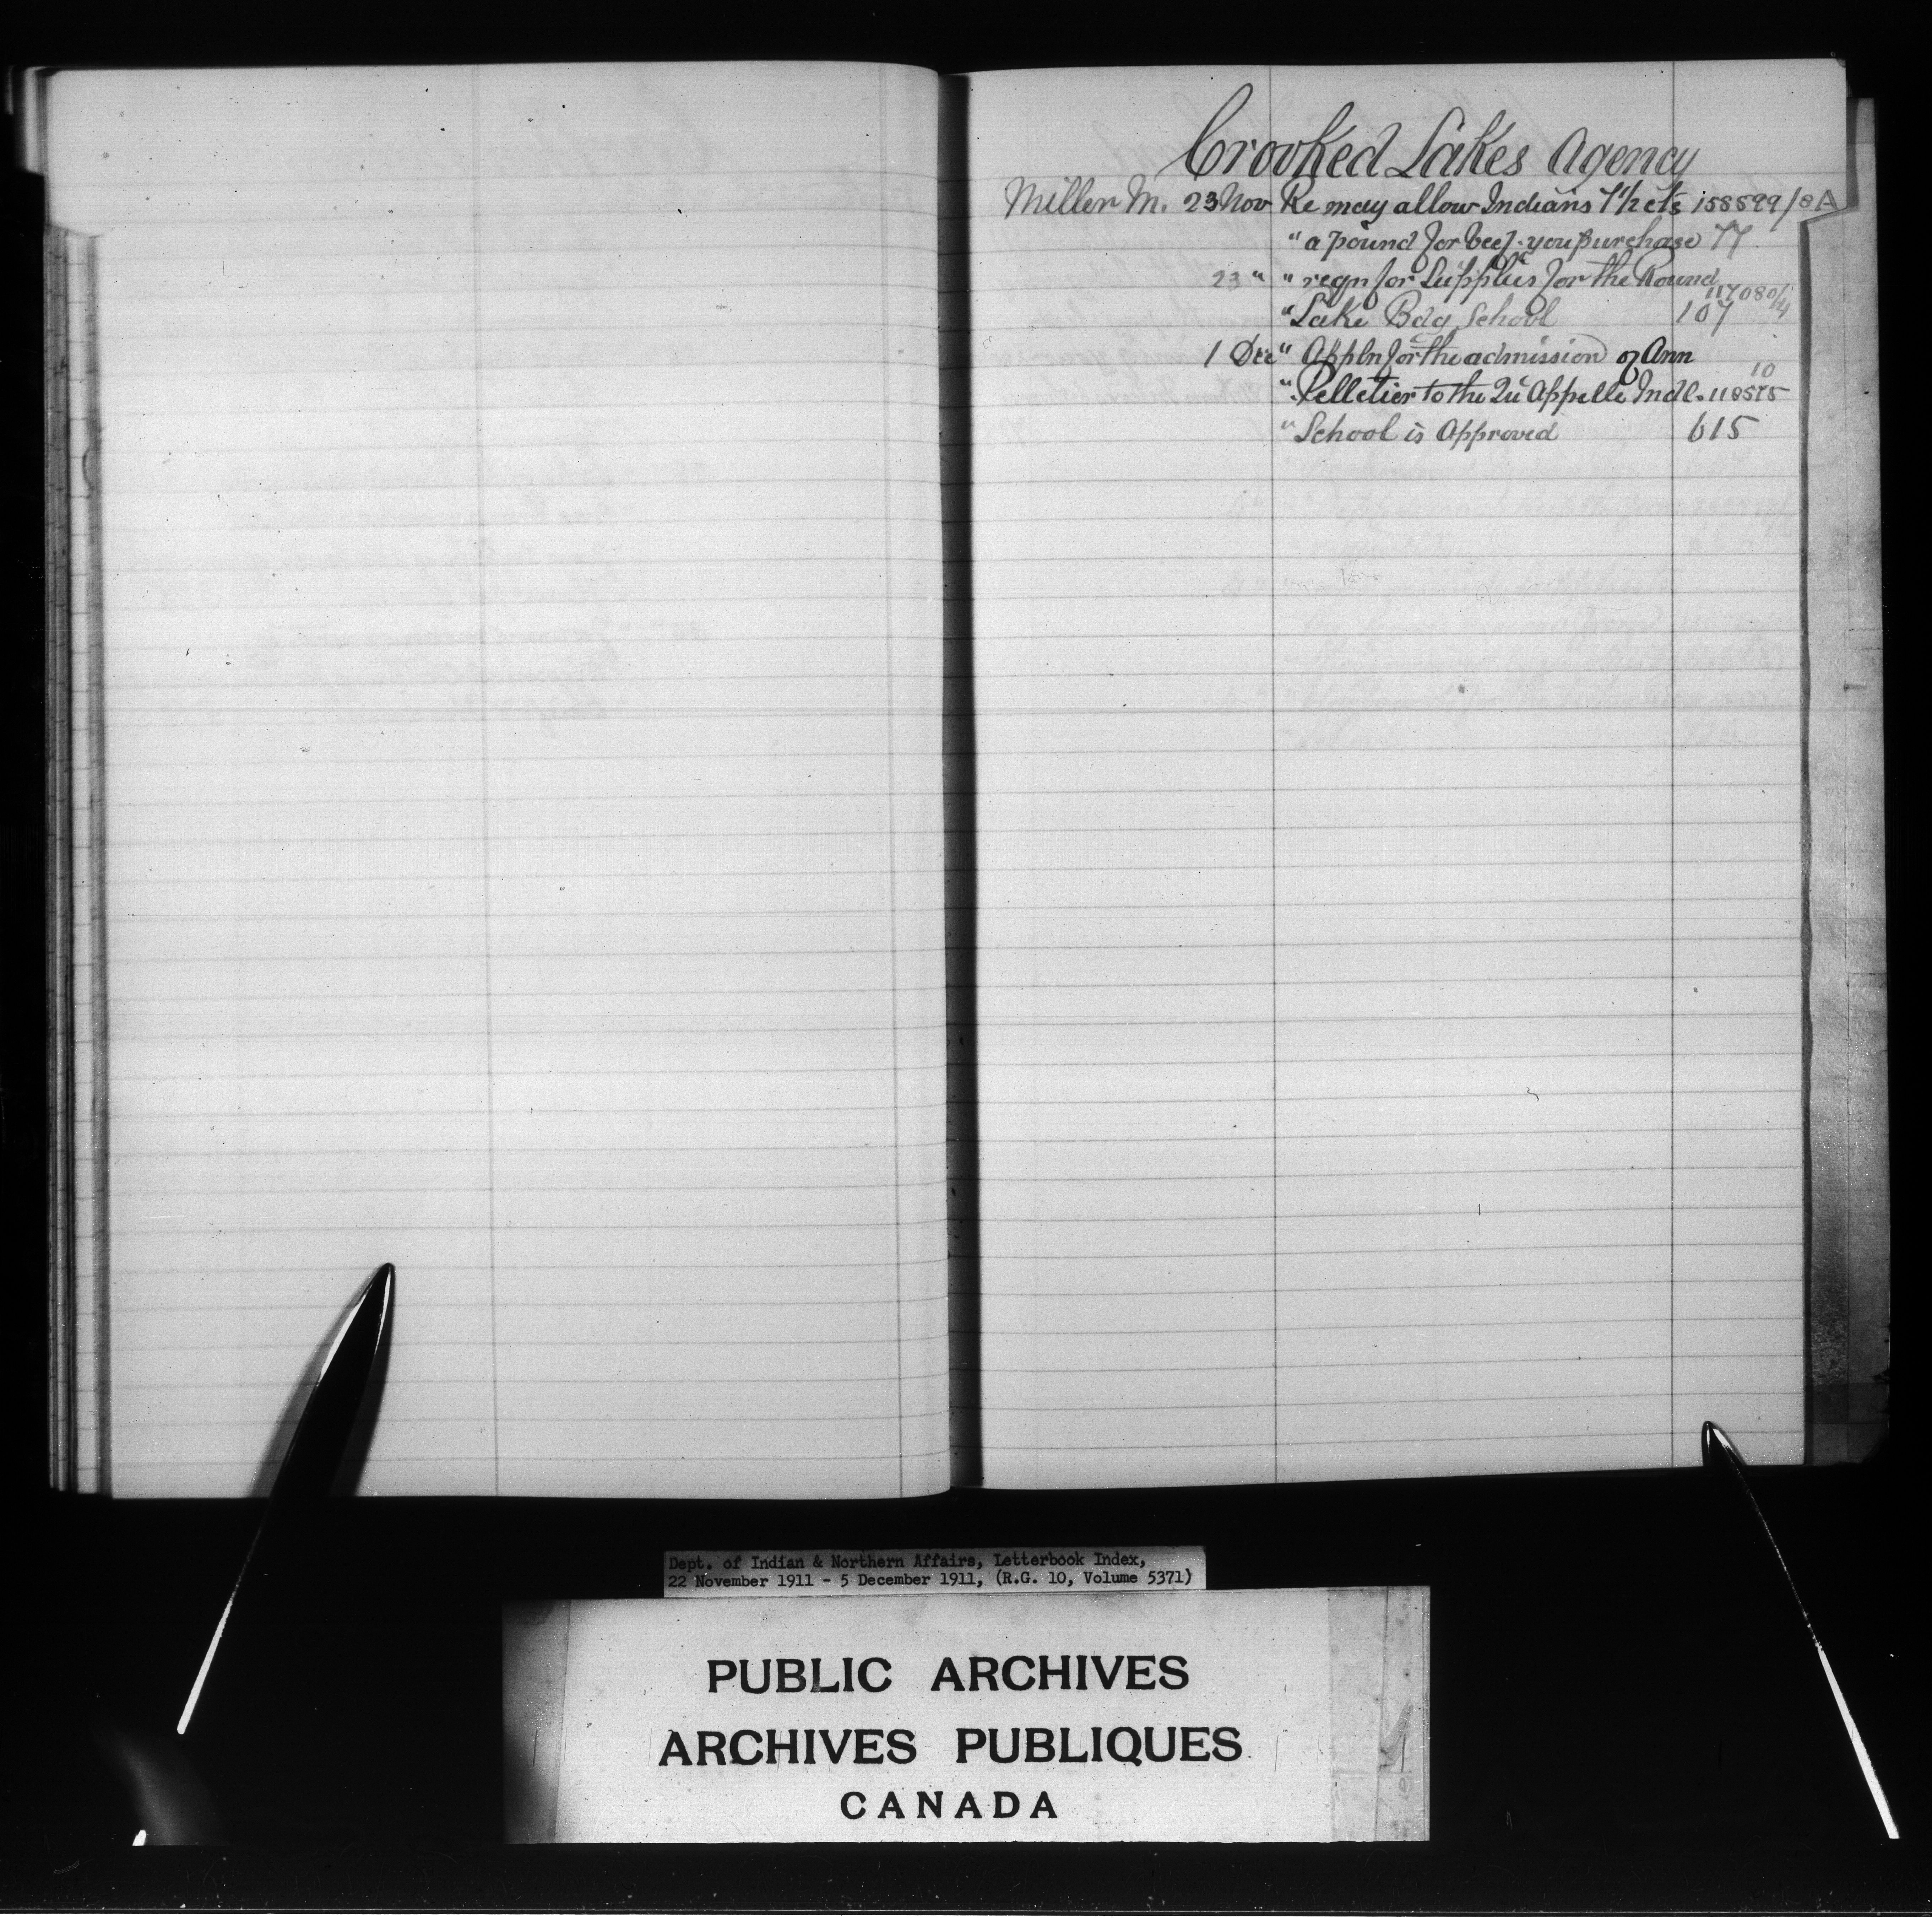 Crooked Lakes Agency
Miller M. 23 Nov Re may allow Indians 7 1/2 cts 158599/8A
" a pound for beef you purchase 77
23 " " reqn for Supplies for the Round 117080/4
" Lake Bdg School 107
1 Dec " Appln for the admission of Ann 10
" Pelletier to the Qu'Appelle Indl. 118575
" School is Approved 615
Dept. of Indian & Northern Affairs, Letterbook Index,
22 November 1911 - 5 December 1911, (R.G. 10, Volume 5371)
PUBLIC ARCHIVES
ARCHIVES PUBLIQUES
CANADA